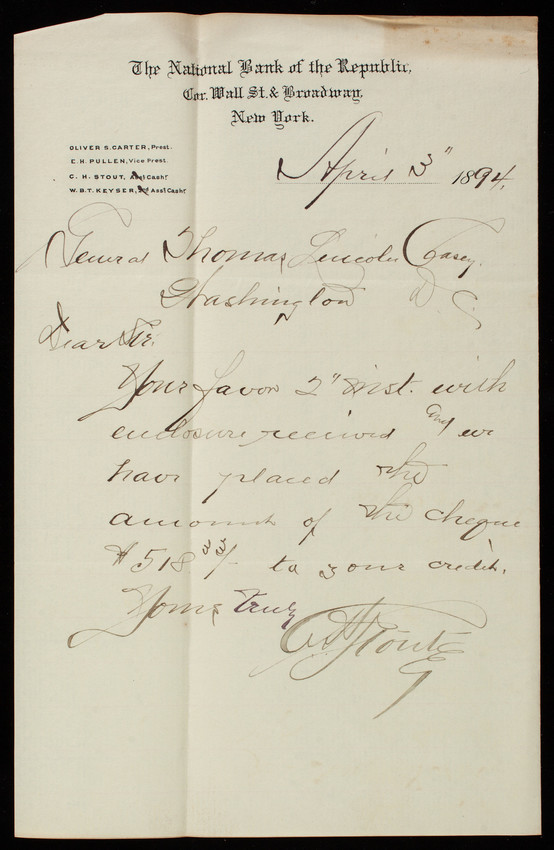 The National Bank of the Republic,
Cor. Wall St. & Broadway,
New York.
OLIVER S. CARTER, Prest.
E. H. PULLEN, Vice Prest.
C. H. STOUT, Asst Cashr
W. B. T. KEYSER, 2nd Asst Cashr
April 3" 1894.
General Thomas Lincoln Casey.
Washington D C.
Dear Sir.
Your favor 2" inst. with
enclosure received and we
have placed the
amount of the cheque
$518 33/ to your credit.
Yours truly
C H Stout